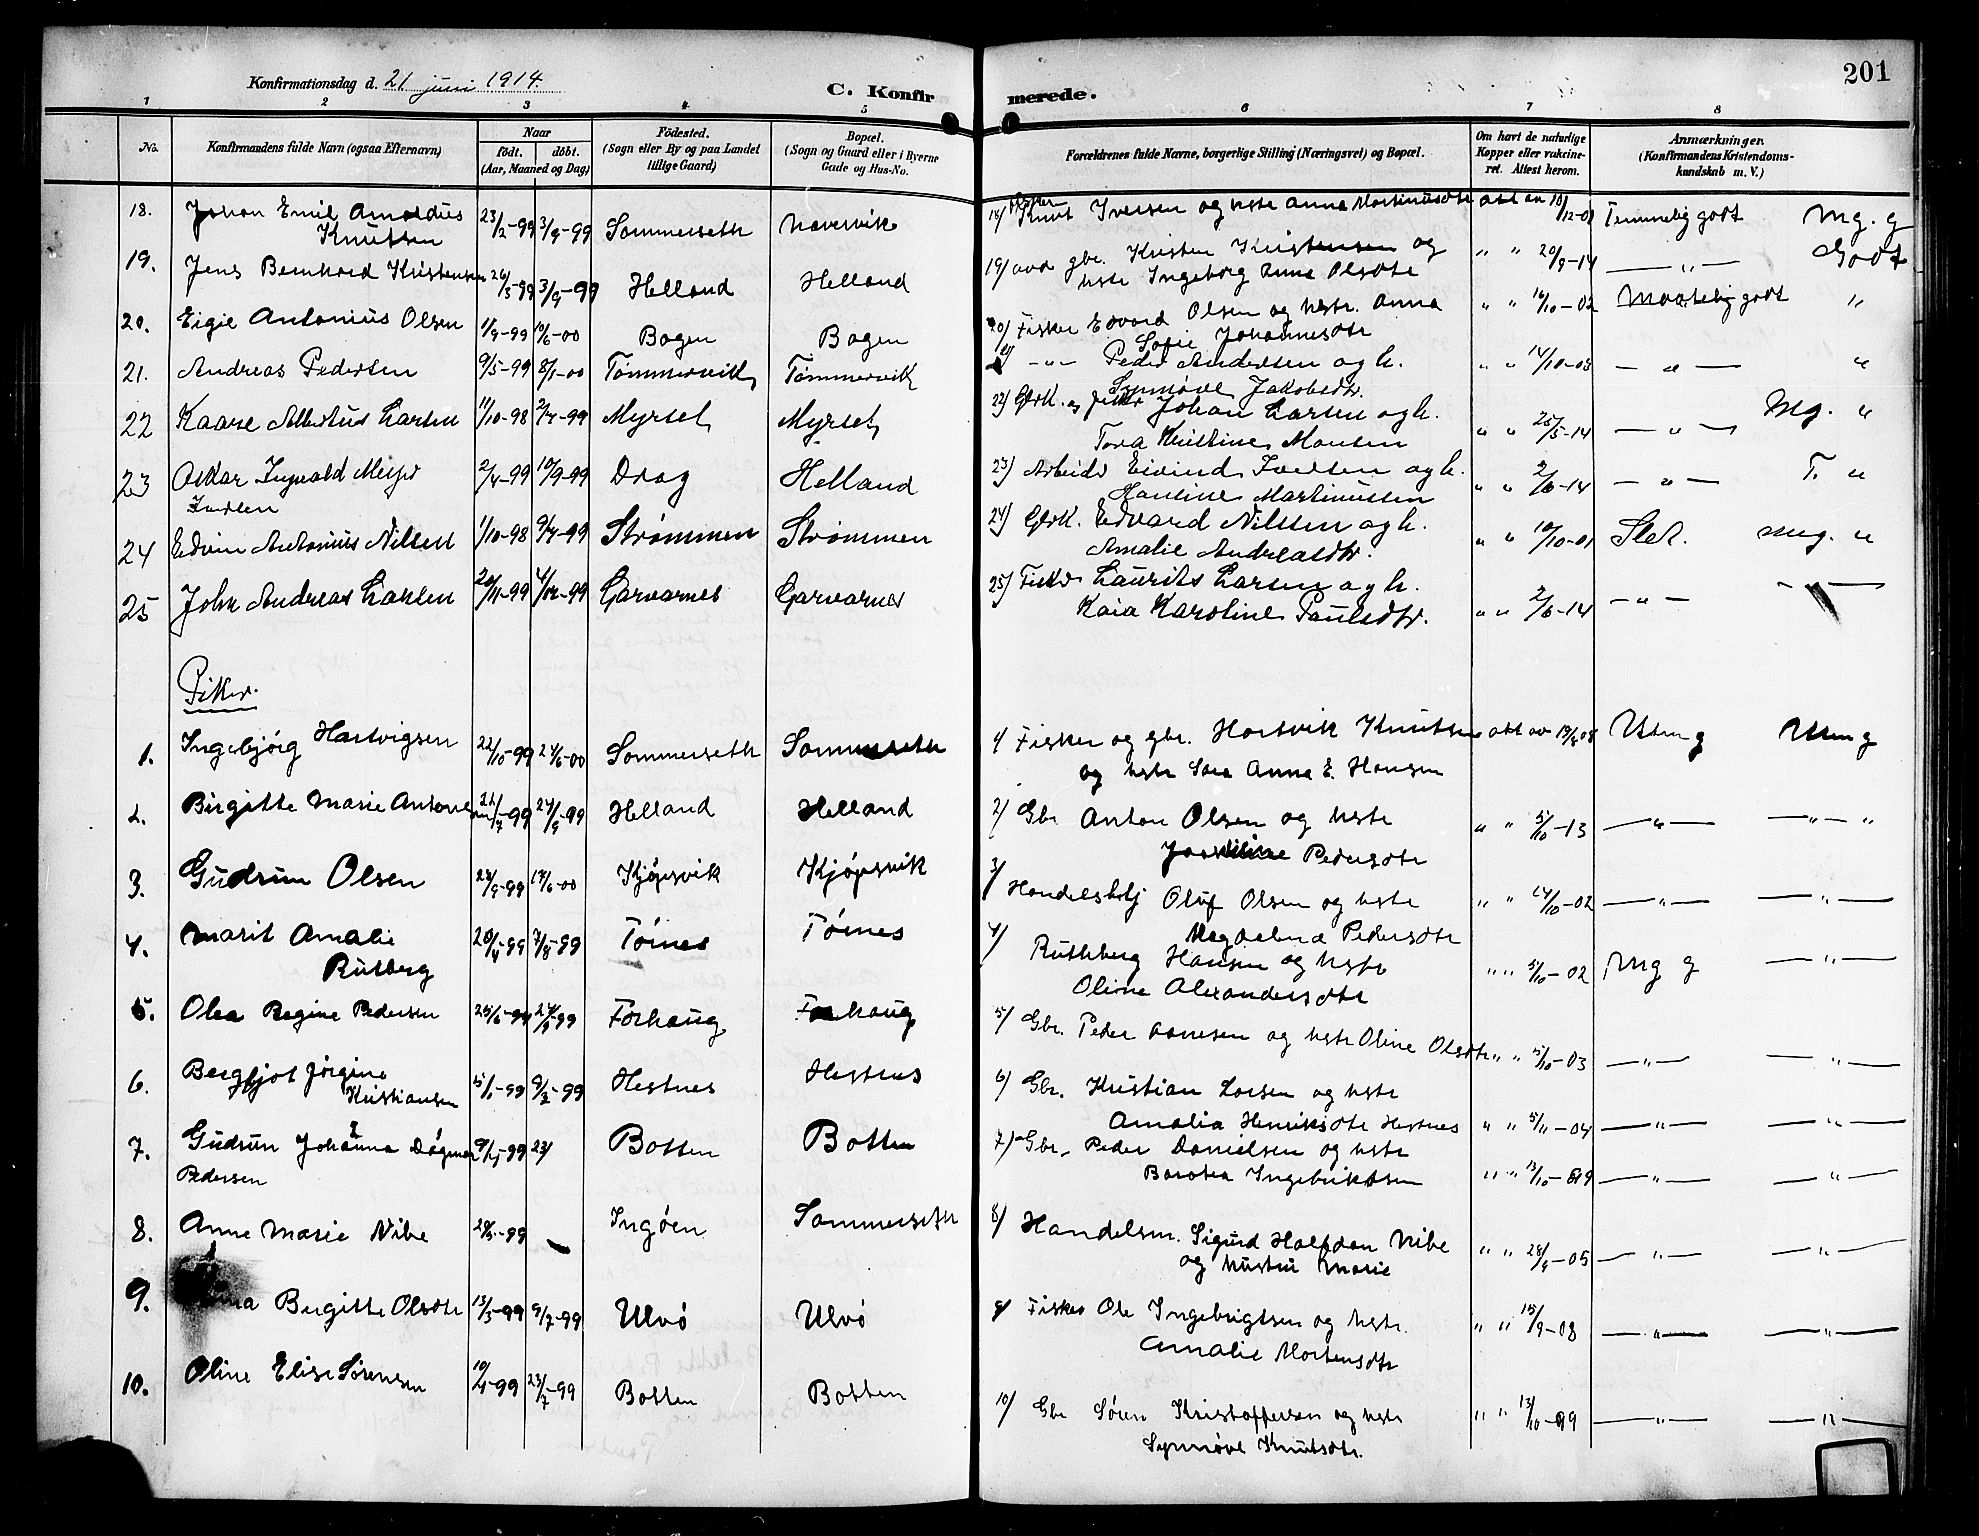 Konfirmationsdag d. 21 juni 1914.
C. Konfir
merede.
201
1
2
3
4
5
6
7
8
No.
Konfirmandens fulde Navn (ogsaa Efternavn)
Naar
født. døbt.
(Aar, Maaned og Dag)
Fødested.
(Sogn eller By og paa Landet
tillige Gaard)
Bopæl.
(Sogn og Gaard eller i Byerne
Gade og Hus-No.
Forældrenes fulde Navne, borgerlige Stilling (Næringsvei) og Bopæl.
Om havt de naturlige
Kopper eller vakcine-
ret. Attest herom.
Anmærkninger.
(Konfirmandens Kristendoms-
kundskab m. V.)
18. Johan Emil Arnoldus
Knutsen
23/2-99 3/9-99 Sommerseth
18/ Fisker Knut Iversen og hstr Anna Martinusdtr att av 10/12-01 Temmelig godt Mg. g
19. Jens Bernhard Kristensen 26/5-99 3/9-99 Helland Helland
19/ gbr. Kristen Kristensen og
hstr Ingeborg Anna Olsdtr " " 20/9-14 — " — Godt
20. Eigil Antonius Olsen 11/9-99 10/6-00 Bogen Bogen
20/ Fisker Edvard Olsen og hstr. Anna
Sofie Johannesdtr " " 16/10-02 Maatelig godt "
21. Andreas Pedersen 9/5-99 8/1-00 Tømmervik Tømmervik
21/ -"- Peder Andersen og h.
Synnøve Jakobsdtr. " " 14/10-03 — " — "
22 Kaare Albertus Larsen 11/10-98 2/4-99 Myrset Myrset
22/ Gbrk. og fisker Johan Larsen og h.
Tora Kristine Monsen " " 25/5-14 — " — Mg. "
23 Oskar Ingvald Meyer
Ivarsen
2/4-99 10/9-99 Drag Helland
23/ Arbeider Eivind Ivarsen og h.
Hansine Martinussen " " 2/6-14 — " — T. "
24 Edvin Antonius Nilsen 1/10-98 9/4-99 Strømmen Strømmen
24/ Gbrk. Edvard Nilsen og h.
Amalie Andreasdtr. " " 10/10-01 Slet. Mg. "
25 John Andreas Larsen 20/11-99 Garvarnes Garvarnes
25/ Fisker Laurits Larsen og h.
Kaia Karoline Paulsdtr. " " 2/6-14 — " — — " —
Piker.
1. Ingebjørg Hartvigsen 22/10-99 24/6-00 Sommerseth Sommerseth
1/ Fisker og gbr. Hartvik Knutsen
og hstr Sara Anna E. Hansen att av Utm g Utm g
2. Birgitte Marie Antonsen 24/9-99 Helland Helland
2/ Gbr Anton Olsen og hstr
Pedersdtr " " 5/10-13 — " — — " — "
3. Gudrun Olsen 23/9-99 17/6-00 Kjøpsvik Kjøpsvik
3/ Handelsbetj Oluf Olsen og hstr
Magdalena Pedersdtr " " 14/10-02 — " — — " —
4. Marit Amalie
Rutberg
20/4-99 7/8-99 Tørnes Tørnes
4/ Rutberg Hansen og hstr
Oline Alexandersdtr " " 5/10-02 Mg g — " —
5. Olea Regine Pedersen 25/6-99 24/9-99 Forhaug Forhaug
5/ Gbr. Peder og hstr Oline Olsdtr " " 5/10-03 — " — — " —
6. Bergljot Jørgine
Kristiansen
5/1-99 9/3-99 Hestnes Hestnes
6/ Gbr. Kristian Larsen og hstr
Amalia Henriksdtr Hestnes " " 5/11-04 — " — — " —
7. Gudrun Johanna Dagmar
Pedersen
23/ Botten Botten
7/ Gbr. Peder Danielsen og hstr
Barotea Ingebrikdsen " " 13/10-99 — " — — " —
8. Anne Marie Nibe 28/5-99 — Ingøen Sommerseth
8/ Handelsm. Sigurd Halfdan Nibe
og hustru Marie " " 28/9-05 — " — — " —
9. Birgitte Olsdtr 13/3-99 9/7-99 Ulvø Ulvø
9/ Fisker Ole Ingebrigtsen og hstr.
Amalie Mortensdtr " " 15/9-08 — " — — " —
10. Oline Elise Sørensen 10/4-99 23/7-99 Botten Botten
10/ Gbr Søren Kristoffersen og hstr
Synnøve Knutsdtr. " " 13/10-99 — " — — " —